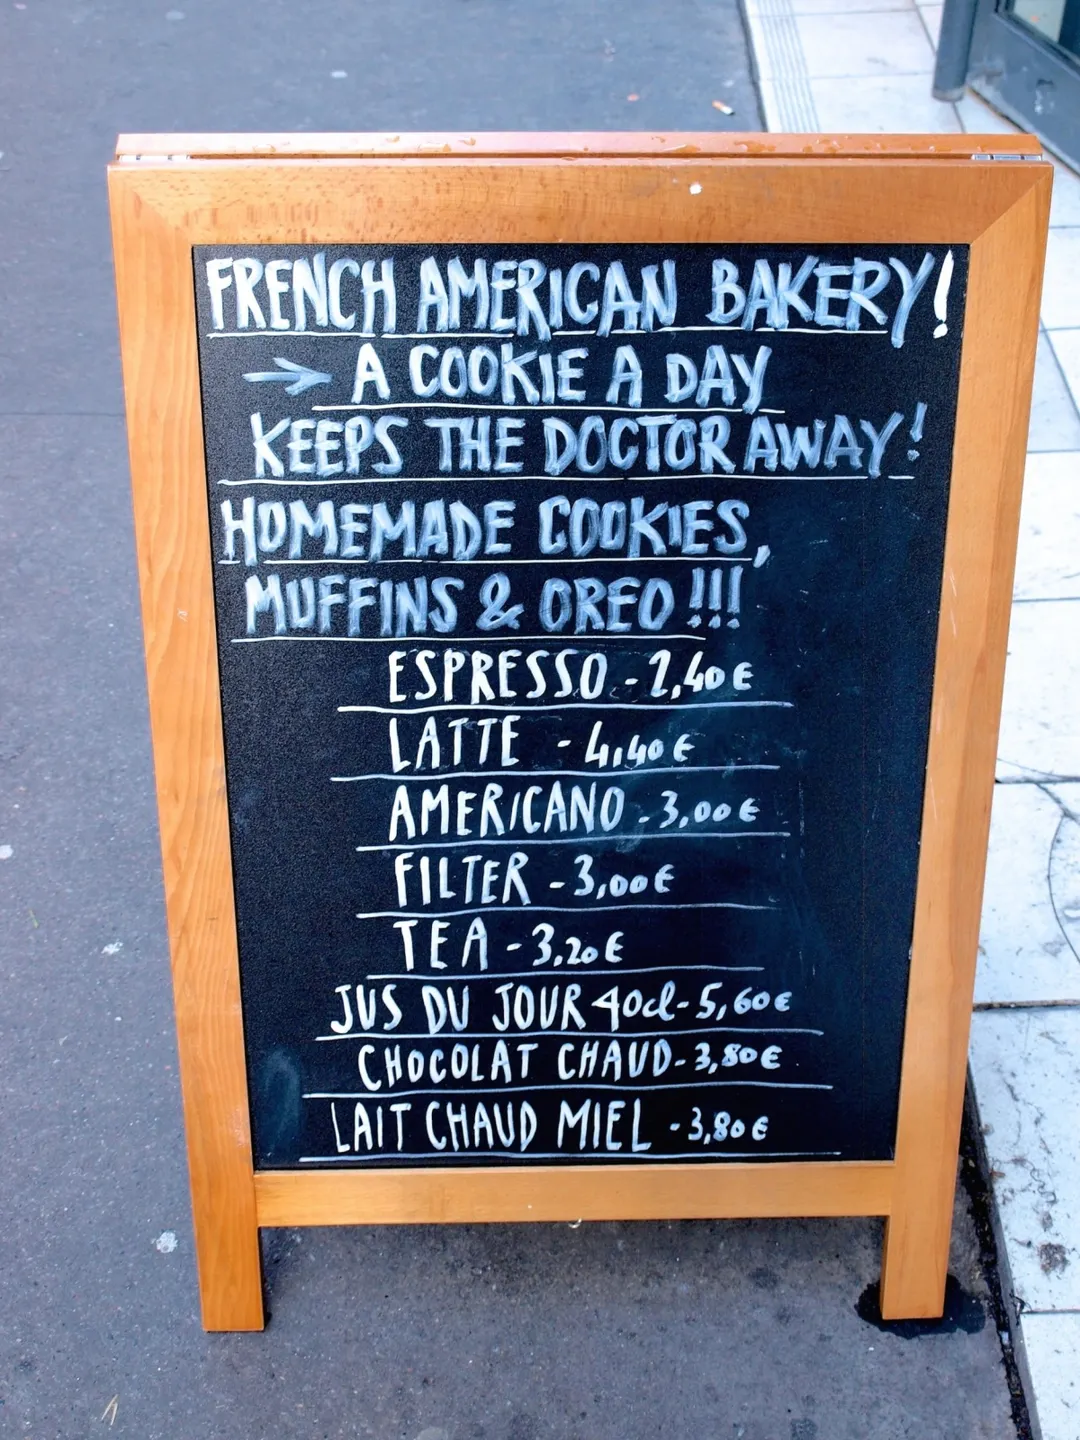 FRENCH AMERICAN BAKERY!
→ A COOKIE A DAY
KEEPS THE DOCTOR AWAY!
HOMEMADE COOKIES,
MUFFINS & OREO !!!
ESPRESSO - 2,40 €
LATTE - 4,40 €
AMERICANO - 3,00 €
FILTER - 3,00 €
TEA - 3,20 €
JUS DU JOUR 40cl - 5,60 €
CHOCOLAT CHAUD - 3,80 €
LAIT CHAUD MIEL - 3,80 €